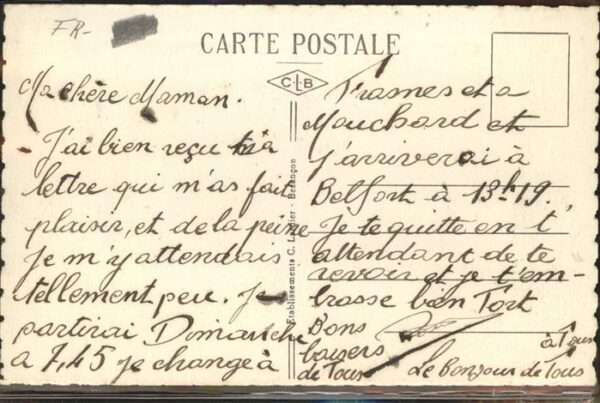 FR-
CARTE POSTALE
C.L.B
Ma chère Maman.
J'ai bien reçu ta
lettre qui m'as fait
plaisir, et de la peine
je m'y attendais
tellement peu. Je
partirai Dimanche
a 7,45 je change à
Frasnes et a
Mouchard et
j'arriverai à
Belfort à 13h19.
Je te quitte en t'
attendant de te
revoir et je t'em-
brasse bien Fort
Bons
baisers
de Tous
à Tous
Le bonjour de Tous
Etablissements C. - Besançon